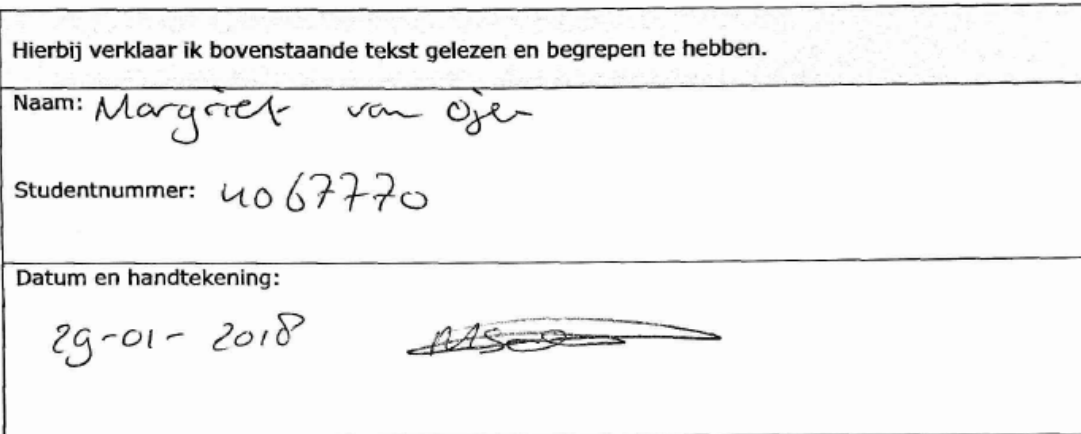 Hierbij verklaar ik bovenstaande tekst gelezen en begrepen te hebben.
Naam: Margriet van Ojen
Studentnummer: 4067770
Datum en handtekening:
29-01-2018